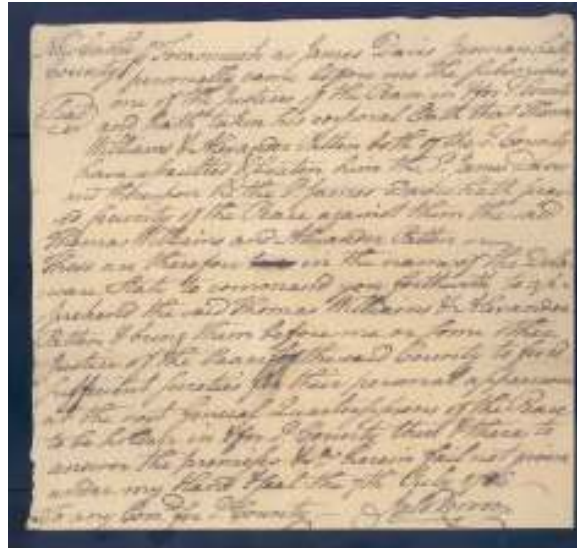 County } Forasmuch as James Davis
personally came before me the subscriber
one of the Justices of the Peace in & for County
and hath taken his corporal Oath that Thomas
Williams & Alexander both of the sd County
have assaulted & beaten him the sd James Davis
and thereupon he the sd James Davis hath prayed
security of the Peace against them the said
Thomas Williams and Alexander
These are therefore in the name of the Dela
ware State to command you forthwith to ap=
prehend the said Thomas Williams & Alexander
& bring them before me or some other
Justice of the Peace of the said County to find
sufficient sureties for their personal appearance
at the next General Quarter Sessions of the Peace
to be holden in & for sd County then & there to
answer the premises & herein fail not given
under my Hand & Seal the 7th July
To any Con. for County